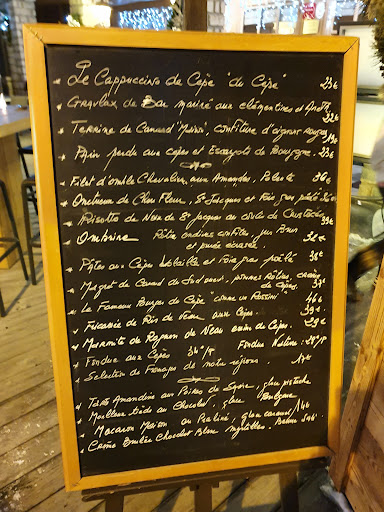 Le Cappuccino de Cèpe "du Cèpe" 23€
Gravlax de Bar mariné aux clémentines et Aneth 32€
Terrine de Canard "Maison", confiture d'oignons rouges 19€
Pain perdu aux cèpes et Escargots de Bourgogne 23€
Filet d'omble Chevalier aux Amandes, Polenta 36€
Onctueux de Chou Fleur, St Jacques et Foie gras poêlé
Risotto de Noix de St Jacques au coulis de Crustacés 39€
Ombrine Rôtie, endives confites, jus Brun et purée écrasée 32€
Pâtes aux Cèpes, volaille et Foie gras poêlé 38€
Magret de Canard du Sud ouest, pommes Rôties, crème de Cèpes 37€
Le Fameux Burger de Cèpe "comme un Rossini" 46€
Fricassée de Ris de Veau aux Cèpes 39€
Marmite de Rognon de Veau aux Cèpes 29€
Fondue aux Cèpes 34€/P Fondue Nature 28€/P
Sélection de Fromages de notre région 17€
Tarte Amandine aux Poires de Savoie, glace pistache
Moelleux tiède au Chocolat, glace Bulgare
Macaron Maison au Praliné, glace caramel 14€
Crème Brulée Chocolat Blanc myrtilles